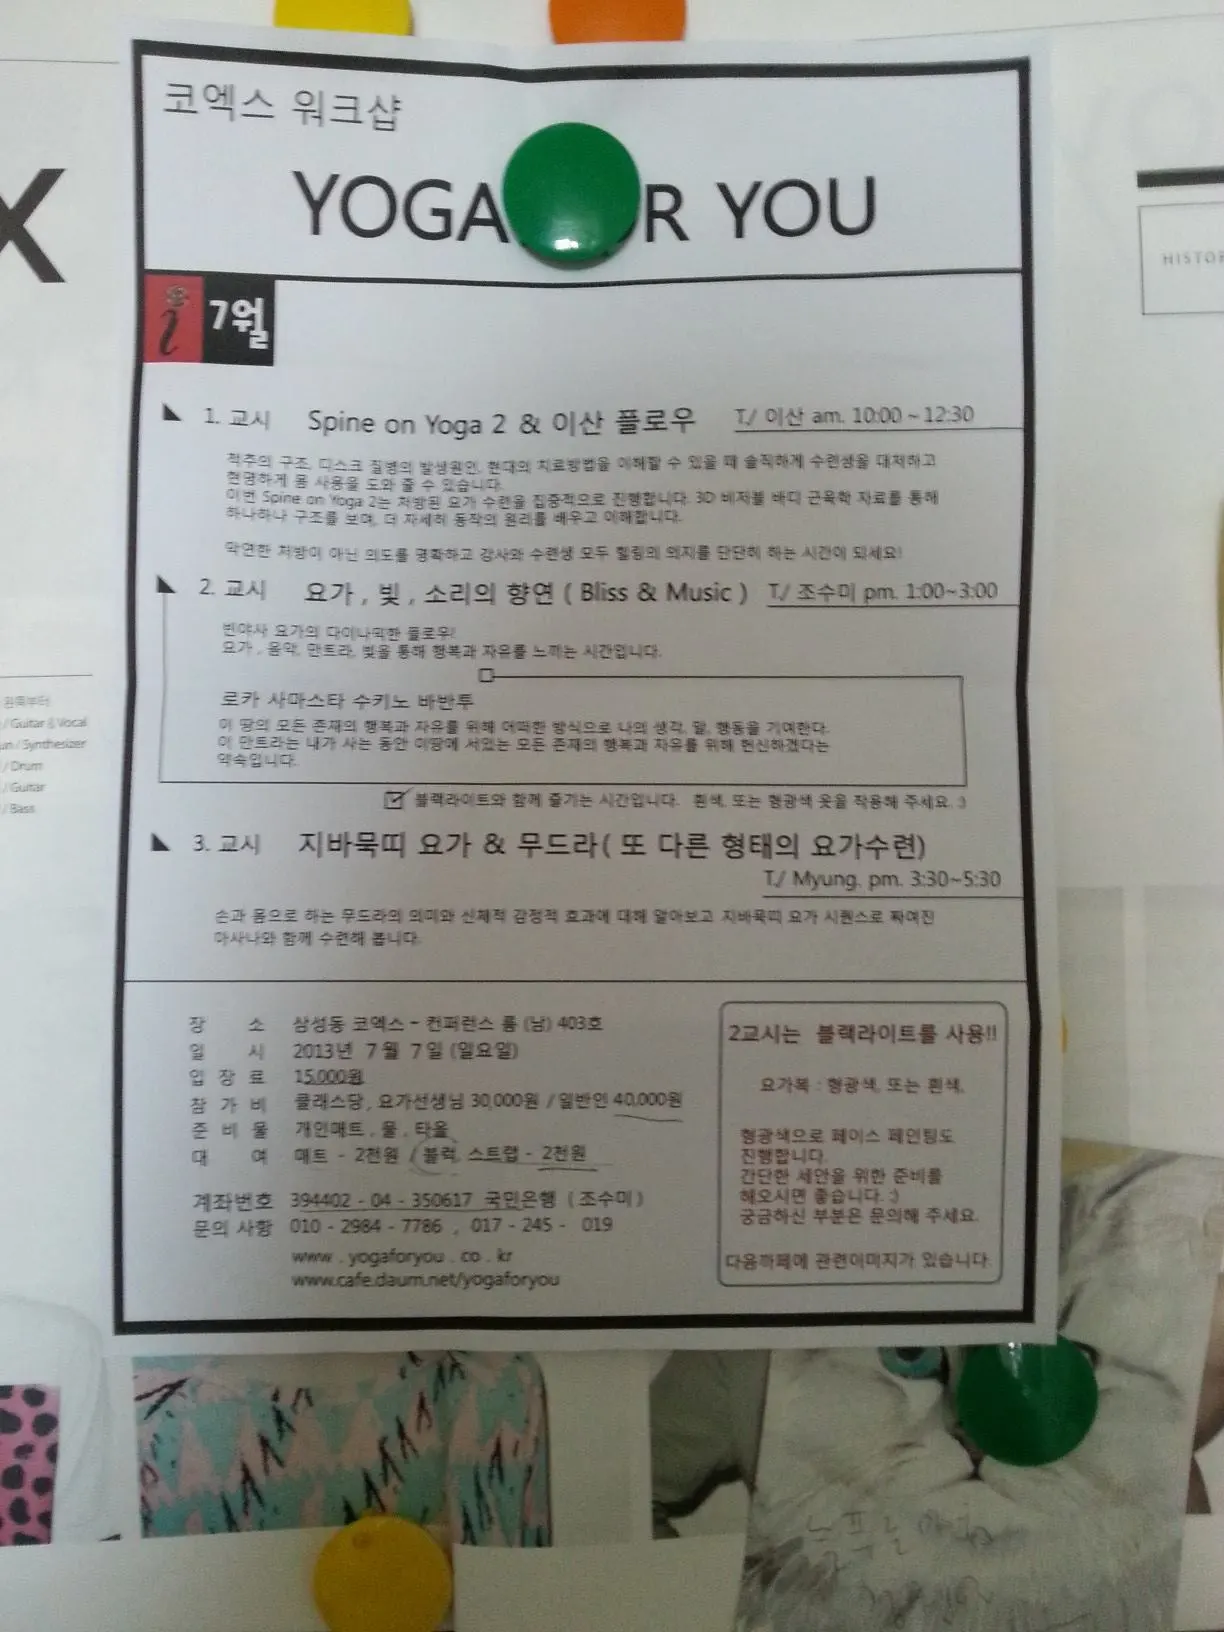 코엑스 워크샵
YOGA R YOU
7월
1. 교시 Spine on Yoga 2 & 이산 플로우 T./ 이산 am. 10:00 ~ 12:30
척추의 구조, 디스크 질병의 발생원인, 현대의 치료방법을 이해할 수 있을 때 솔직하게 수련생을 대처하고
현명하게 몸 사용을 도와 줄 수 있습니다.
이번 Spine on Yoga 2는 처방된 요가 수련을 집중적으로 진행합니다. 3D 비저블 바디 근육학 자료를 통해
하나하나 구조를 보며, 더 자세히 동작의 원리를 배우고 이해합니다.
막연한 처방이 아닌 의도를 명확하고 강사와 수련생 모두 힐링의 의지를 단단히 하는 시간이 되세요!
2. 교시 요가 , 빛 , 소리의 향연 ( Bliss & Music ) T./ 조수미 pm. 1:00~3:00
빈야사 요가의 다이나믹한 플로우!
요가 , 음악, 만트라, 빛을 통해 행복과 자유를 느끼는 시간입니다.
로카 사마스타 수키노 바반투
이 땅의 모든 존재의 행복과 자유를 위해 어떠한 방식으로 나의 생각, 말, 행동을 기여한다.
이 만트라는 내가 사는 동안 이땅에 서있는 모든 존재의 행복과 자유를 위해 헌신하겠다는
약속입니다.
블랙라이트와 함께 즐기는 시간입니다. 흰색, 또는 형광색 옷을 착용해 주세요. :)
3. 교시 지바묵띠 요가 & 무드라( 또 다른 형태의 요가수련)
T./ Myung. pm. 3:30~5:30
손과 몸으로 하는 무드라의 의미와 신체적 감정적 효과에 대해 알아보고 지바묵띠 요가 시퀀스로 짜여진
아사나와 함께 수련해 봅니다.
장 소 삼성동 코엑스 - 컨퍼런스 룸 (남) 403호
일 시 2013년 7월 7일 (일요일)
입 장 료 15,000원
참 가 비 클래스당, 요가선생님 30,000원 / 일반인 40,000원
준 비 물 개인매트 , 물 , 타올
대 여 매트 - 2천원 / 블럭, 스트랩 - 2천원
계좌번호 394402 - 04 - 350617 국민은행 ( 조수미 )
문의 사항 010 - 2984 - 7786 , 017 - 245 - 019
www . yogaforyou . co . kr
www.cafe.daum.net/yogaforyou
2교시는 블랙라이트를 사용!!
요가복 : 형광색, 또는 흰색,
형광색으로 페이스 페인팅도
진행합니다.
간단한 세안을 위한 준비를
해오시면 좋습니다. :)
궁금하신 부분은 문의해 주세요.
다음까페에 관련이미지가 있습니다.
X
왼쪽부터
/ Guitar & Vocal
un / Synthesizer
/ Drum
/ Guitar
/ Bass